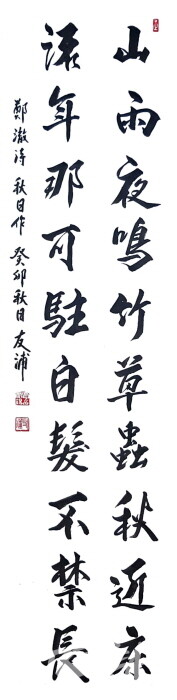 山雨夜鳴竹草蟲秋近床
流年那可駐白髮不禁長
鄭澈詩秋日作癸卯秋日友浦